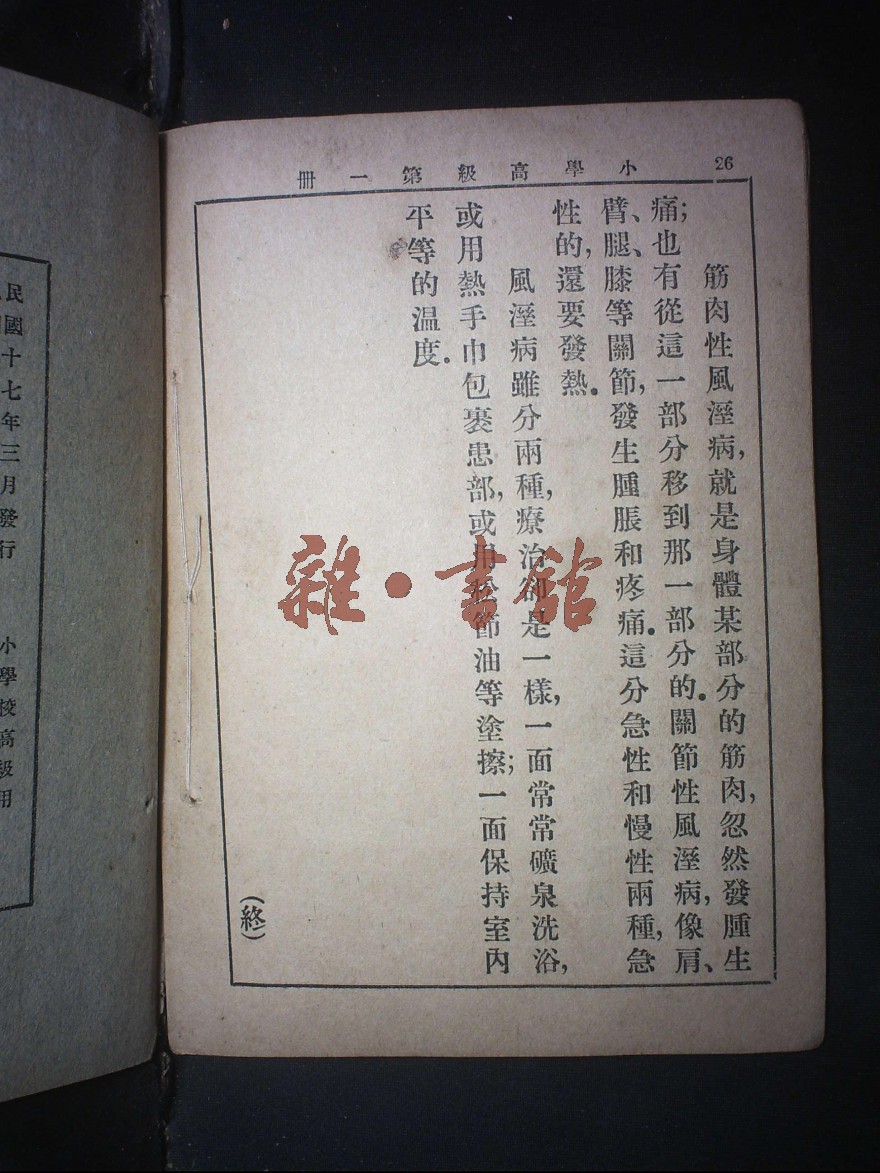 26
小學高級第一冊
筋肉性風溼病,就是身體某部分的筋肉,忽然發腫生
痛;也有從這一部分移到那一部分的.關節性風溼病,像肩、
臂、腿、膝等關節,發生腫脹和疼痛.這分急性和慢性兩種,急
性的,還要發熱.
風溼病雖分兩種,療治卻是一樣,一面常常礦泉洗浴,
或用熱手巾包裹患部,或用松節油等塗擦;一面保持室內
平等的溫度.
(終)
雜·書館
民國十七年三月發行
小學校高級用